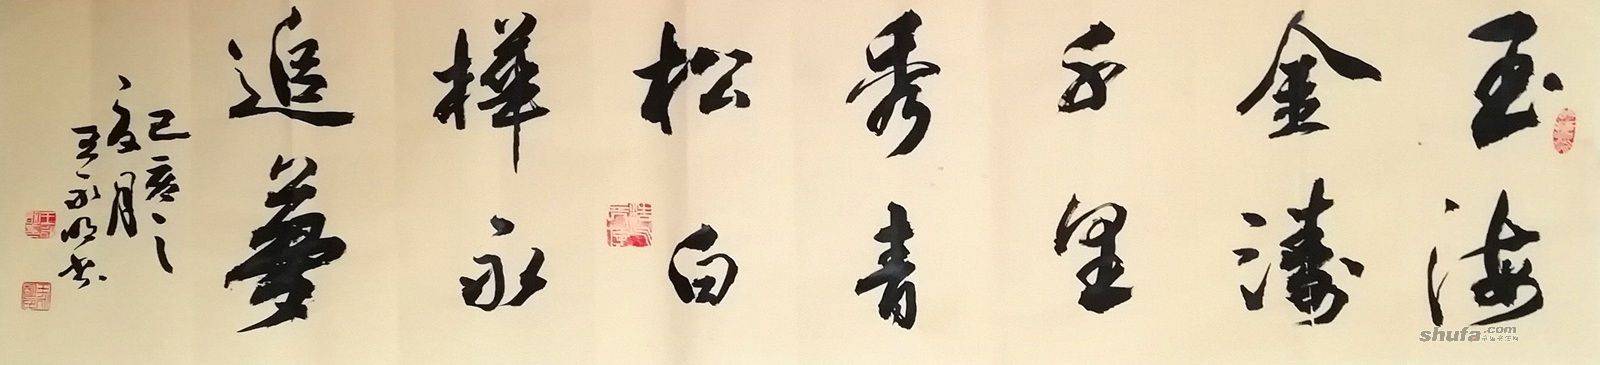 玉海
金涛
千里
秀青
松白
桦永
追夢
己亥之
夏月
王永明书
shufa.com